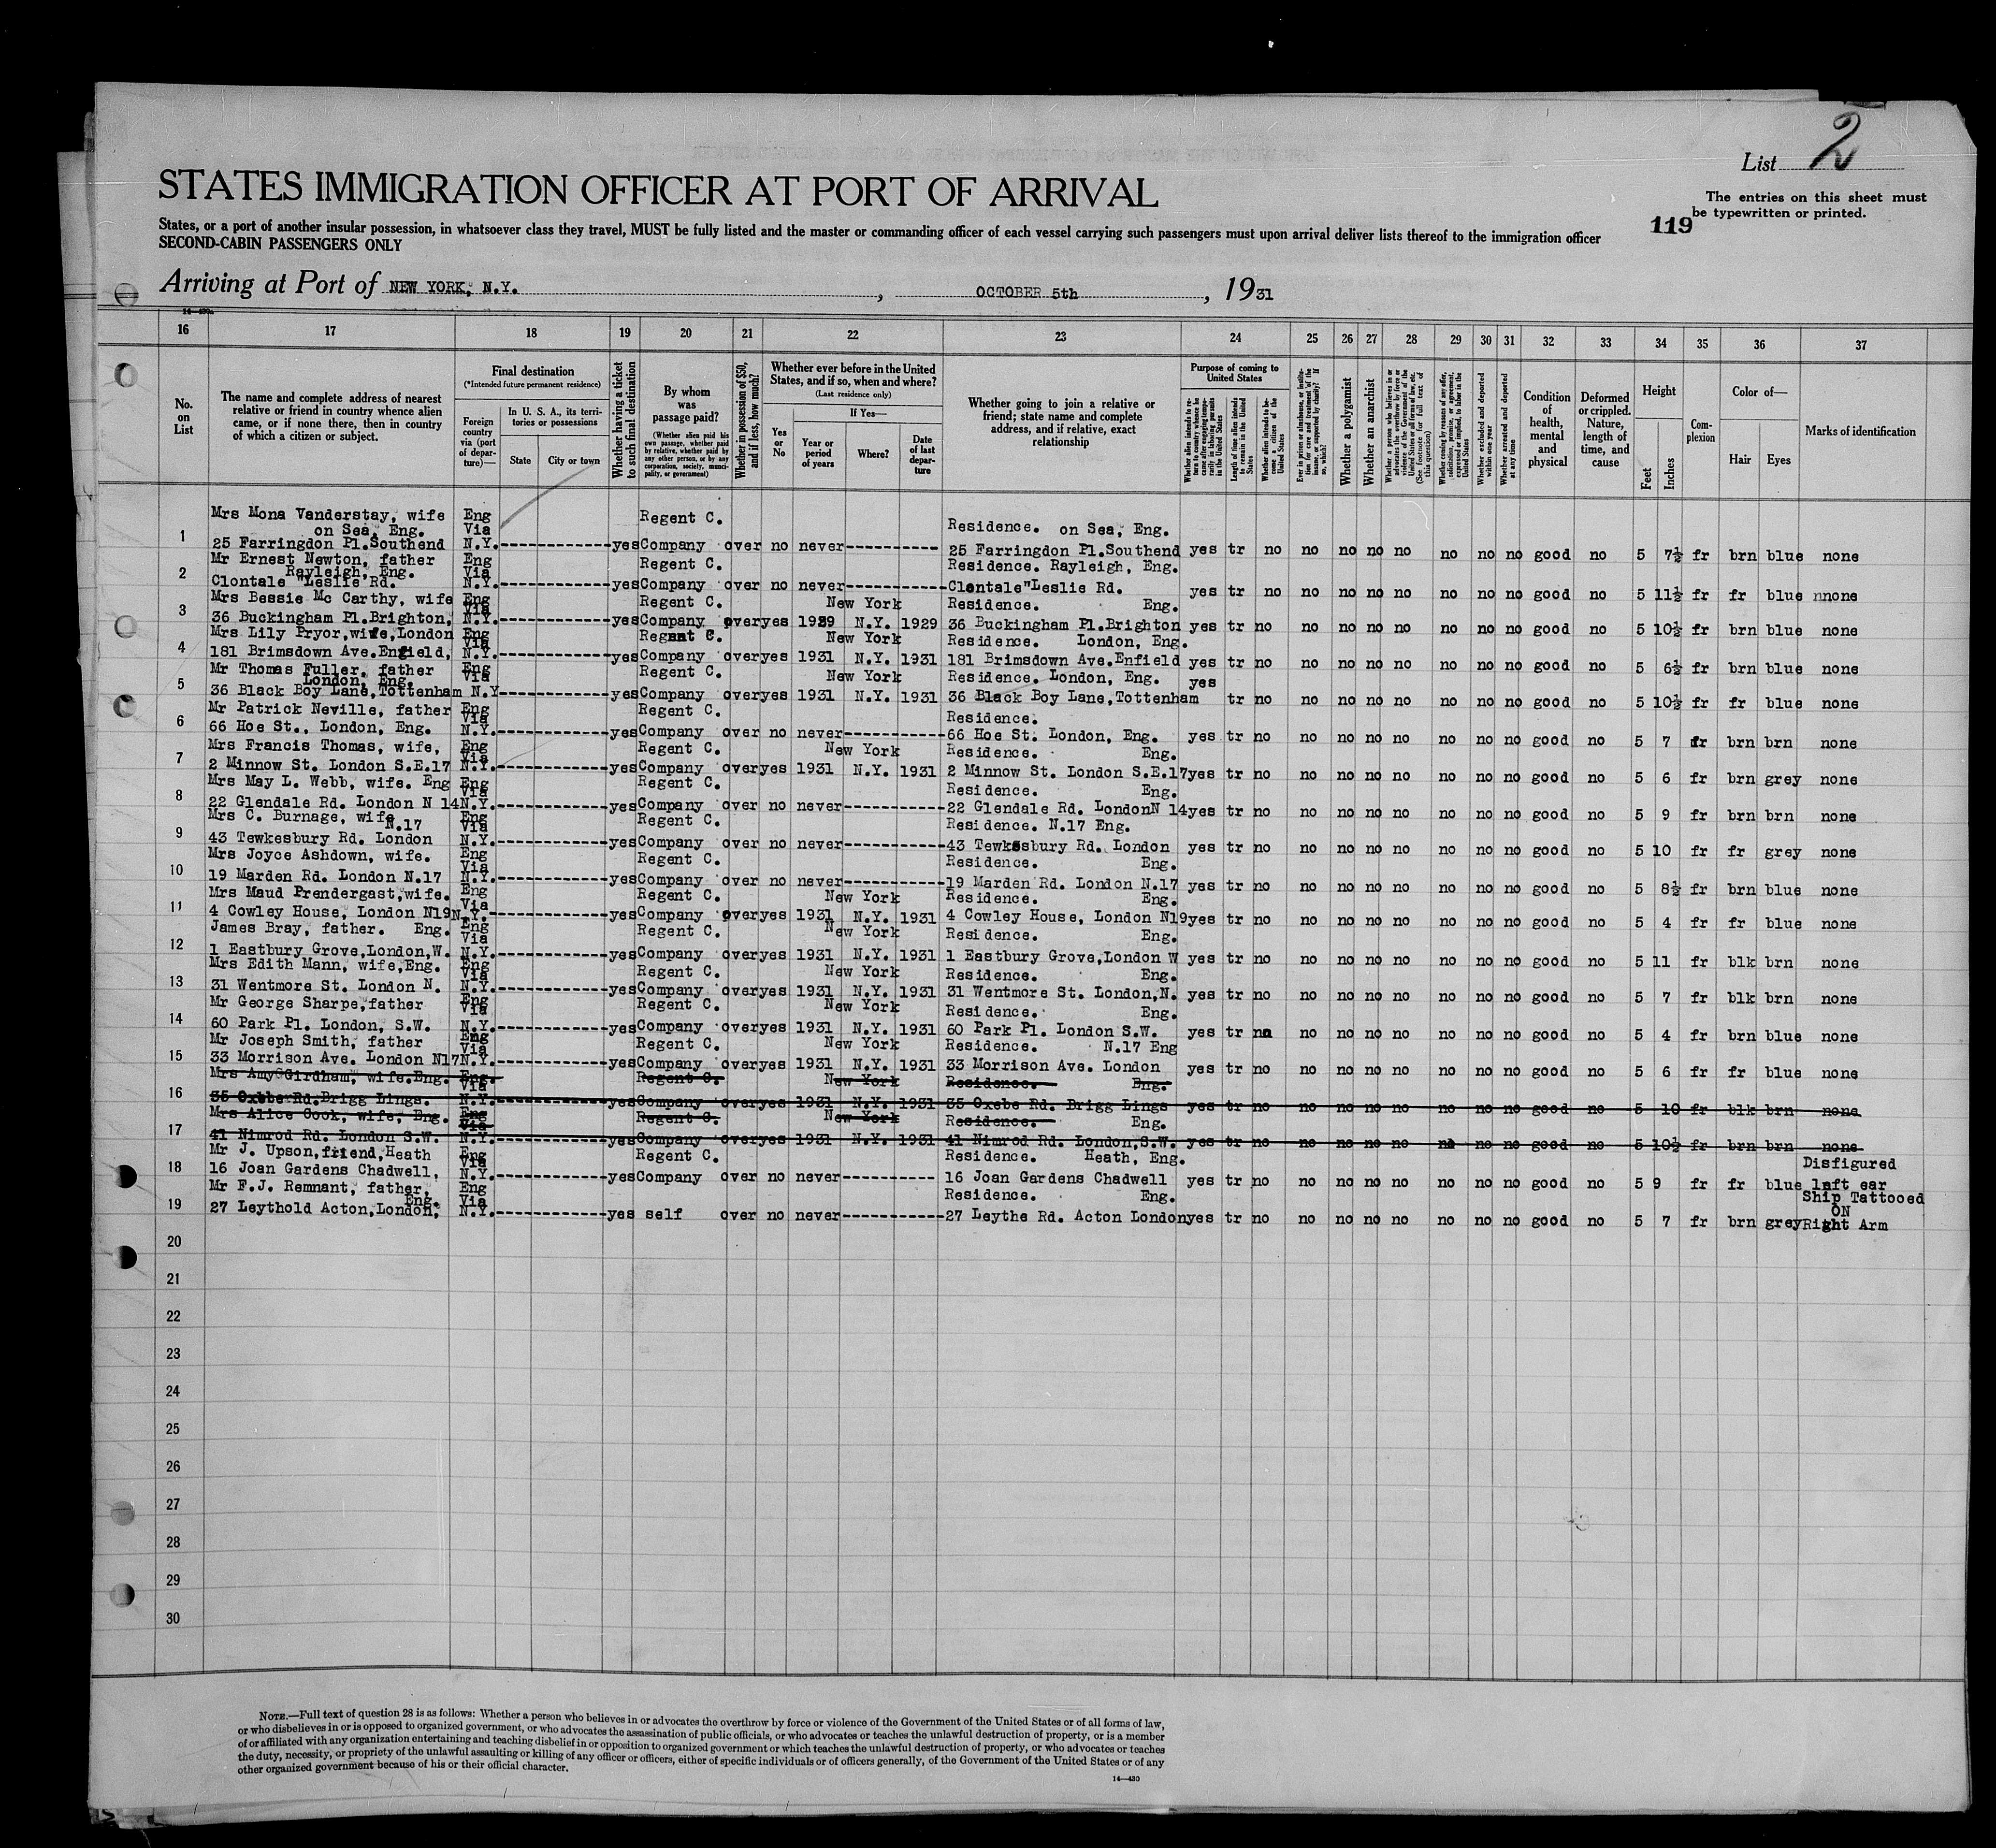 List 2
STATES IMMIGRATION OFFICER AT PORT OF ARRIVAL
The entries on this sheet must
be typewritten or printed.
119
States, or a port of another insular possession, in whatsoever class they travel, MUST be fully listed and the master or commanding officer of each vessel carrying such passengers must upon arrival deliver lists thereof to the immigration officer
SECOND-CABIN PASSENGERS ONLY
Arriving at Port of NEW YORK, N.Y. , OCTOBER 5th , 1931
16 17 18 19 20 21 22 23 24 25 26 27 28 29 30 31 32 33 34 35 36 37
No. on List
The name and complete address of nearest relative or friend in country whence alien came, or if none there, then in country of which a citizen or subject.
Final destination
(*Intended future permanent residence)
Foreign country via (port of departure)—
In U. S. A., its territories or possessions
State
City or town
Whether having a ticket to such final destination
By whom was passage paid?
(Whether alien paid his own passage, whether paid by relative, whether paid by any other person, or by any corporation, society, municipality, or government)
Whether in possession of $50, and if less, how much?
Whether ever before in the United States, and if so, when and where?
(Last residence only)
Yes or No
If Yes—
Year or period of years
Where?
Date of last departure
Whether going to join a relative or friend; state name and complete address, and if relative, exact relationship
Purpose of coming to United States
Whether alien intends to return to country whence he came after engaging temporarily in laboring pursuits in the United States
Length of time alien intends to remain in the United States
Whether alien intends to become a citizen of the United States
Ever in prison or almshouse, or institution for care and treatment of the insane, or supported by charity? If so, which?
Whether a polygamist
Whether an anarchist
Whether a person who believes in or advocates the overthrow by force or violence of the Government of the United States or all forms of law, etc. (See footnote for full text of this question)
Whether coming by reasons of any offer, solicitation, promise, or agreement, expressed or implied, to labor in the United States
Whether excluded and deported within one year
Whether arrested and deported at any time
Condition of health, mental and physical
Deformed or crippled. Nature, length of time, and cause
Height
Feet
Inches
Complexion
Color of—
Hair
Eyes
Marks of identification
Mrs Mona Vanderstay, wife Eng Regent C.
on Sea, Eng. Via Residence. on Sea, Eng.
1 25 Farringdon Pl.Southend N.Y.------------yes Company over no never---------- 25 Farringdon Pl.Southend yes tr no no no no no no no no good no 5 7½ fr brn blue none
Mr Ernest Newton, father Eng Regent C. Residence. Rayleigh, Eng.
Rayleigh, Eng. Via
2 Clontale "Leslie Rd. N.Y.------------yes Company over no never----------Clontale"Leslie Rd. yes tr no no no no no no no no good no 5 11½ fr fr blue nnone
Mrs Bessie Mc Carthy, wife Eng Via Regent C. New York Residence. Eng.
3 36 Buckingham Pl.Brighton, N.Y.------------yes Company over yes 1929 N.Y. 1929 36 Buckingham Pl.Brighton yes tr no no no no no no no no good no 5 10½ fr brn blue none
Mrs Lily Pryor,wife,London Eng Via Regent C. New York Residence. London, Eng.
4 181 Brimsdown Ave.Enfield, N.Y.------------yes Company over yes 1931 N.Y. 1931 181 Brimsdown Ave.Enfield yes tr no no no no no no no no good no 5 6½ fr brn blue none
Mr Thomas Fuller, father Eng Regent C. New York Residence. London, Eng.
London, Eng. Via yes
5 36 Black Boy Lane,Tottenham N.Y------------yes Company over yes 1931 N.Y. 1931 36 Black Boy Lane,Tottenham tr no no no no no no no no good no 5 10½ fr fr blue none
Mr Patrick Neville, father Eng Via Regent C. Residence.
6 66 Hoe St., London, Eng. N.Y.------------yes Company over no never----------66 Hoe St. London, Eng. yes tr no no no no no no no no good no 5 7 fr brn brn none
Mrs Francis Thomas, wife, Eng Via Regent C. New York Residence. Eng.
7 2 Minnow St. London S.E.17 N.Y.------------yes Company over yes 1931 N.Y. 1931 2 Minnow St. London S.E.17 yes tr no no no no no no no no good no 5 6 fr brn grey none
Mrs May L. Webb, wife. Eng Eng Via Regent C. Residence. Eng.
8 22 Glendale Rd. London N 14 N.Y.------------yes Company over no never----------22 Glendale Rd. LondonN 14 yes tr no no no no no no no no good no 5 9 fr brn brn none
Mrs C. Burnage, wife Eng Regent C. Residence. N.17 Eng.
N.17 Via
9 43 Tewkesbury Rd. London N.Y.------------yes Company over no never----------43 Tewkesbury Rd. London yes tr no no no no no no no no good no 5 10 fr fr grey none
Mrs Joyce Ashdown, wife. Eng Via Regent C. Residence. Eng.
10 19 Marden Rd. London N.17 N.Y.------------yes Company over no never----------19 Marden Rd. London N.17 yes tr no no no no no no no no good no 5 8½ fr brn blue none
Mrs Maud Prendergast,wife. Eng Via Regent C. New York Residence. Eng.
11 4 Cowley House, London N19 N.Y.------------yes Company over yes 1931 N.Y. 1931 4 Cowley House, London N19 yes tr no no no no no no no no good no 5 4 fr fr blue none
James Bray, father. Eng. Eng Via Regent C. New York Residence. Eng.
12 1 Eastbury Grove,London,W. N.Y.------------yes Company over yes 1931 N.Y. 1931 1 Eastbury Grove,London W yes tr no no no no no no no no good no 5 11 fr blk brn none
Mrs Edith Mann, wife,Eng. Eng Via Regent C. New York Residence. Eng.
13 31 Wentmore St. London N. N.Y.------------yes Company over yes 1931 N.Y. 1931 31 Wentmore St. London,N. yes tr no no no no no no no no good no 5 7 fr blk brn none
Mr George Sharpe,father Eng Via Regent C. New York Residence. Eng.
14 60 Park Pl. London, S.W. N.Y.------------yes Company over yes 1931 N.Y. 1931 60 Park Pl. London S.W. yes tr no no no no no no no no good no 5 4 fr brn blue none
Mr Joseph Smith, father Eng Via Regent C. New York Residence. N.17 Eng
15 33 Morrison Ave. London N17 N.Y.------------yes Company over yes 1931 N.Y. 1931 33 Morrison Ave. London yes tr no no no no no no no no good no 5 6 fr fr blue none
Mrs Amy Girdham, wife.Eng. Eng. Via Regent C. New York Residence. Eng.
16 35 Oxebe Rd.Brigg Lings. N.Y.------------yes Company over yes 1931 N.Y. 1931 35 Oxebe Rd. Brigg Lings yes tr no no no no no no no no good no 5 10 fr blk brn none
Mrs Alice Cook, wife, Eng. Eng Via Regent C. New York Residence. Eng.
17 41 Nimrod Rd. London S.W. N.Y.------------yes Company over yes 1931 N.Y. 1931 41 Nimrod Rd. London,S.W. yes tr no no no no no no no no good no 5 10½ fr brn brn none
Mr J. Upson,friend,Heath Eng Via Regent C. Residence. Heath, Eng. Disfigured
18 16 Joan Gardens Chadwell, N.Y.------------yes Company over no never---------- 16 Joan Gardens Chadwell yes tr no no no no no no no no good no 5 9 fr fr blue left ear
Mr F.J. Remnant, father, Eng Residence. Eng. Ship Tattooed
Eng. Via ON
19 27 Leythold Acton,London, N.Y.------------yes self over no never----------27 Leythe Rd. Acton London yes tr no no no no no no no no good no 5 7 fr brn grey Right Arm
20
21
22
23
24
25
26
27
28
29
30
NOTE.—Full text of question 28 is as follows: Whether a person who believes in or advocates the overthrow by force or violence of the Government of the United States or of all forms of law,
or who disbelieves in or is opposed to organized government, or who advocates the assassination of public officials, or who advocates or teaches the unlawful destruction of property, or is a member
of or affiliated with any organization entertaining and teaching disbelief in or opposition to organized government or which teaches the unlawful destruction of property, or who advocates or teaches
the duty, necessity, or propriety of the unlawful assaulting or killing of any officer or officers, either of specific individuals or of officers generally, of the Government of the United States or of any
other organized government because of his or their official character.
14—430